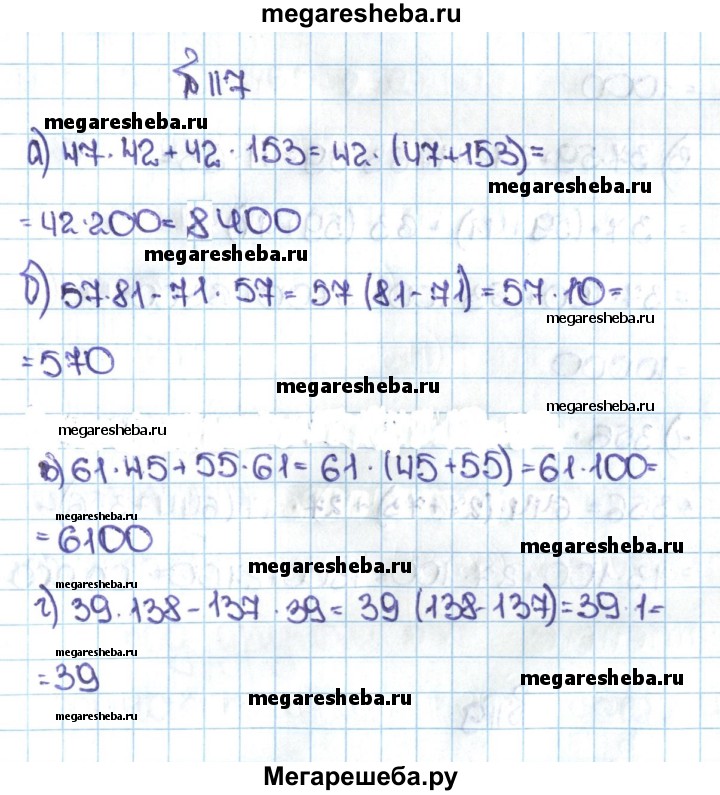 megaresheba.ru
№ 117
megaresheba.ru
а) 47·42+42·153=42·(47+153)=
megaresheba.ru
=42·200=8400
megaresheba.ru
б) 57·81-71·57=57(81-71)=57·10=
megaresheba.ru
=570
megaresheba.ru
megaresheba.ru
megaresheba.ru
в) 61·45+55·61=61·(45+55)=61·100=
megaresheba.ru
=6100
megaresheba.ru
megaresheba.ru
megaresheba.ru
г) 39·138-137·39=39(138-137)=39·1=
megaresheba.ru
=39
megaresheba.ru
megaresheba.ru
megaresheba.ru
Мегарешеба.ру